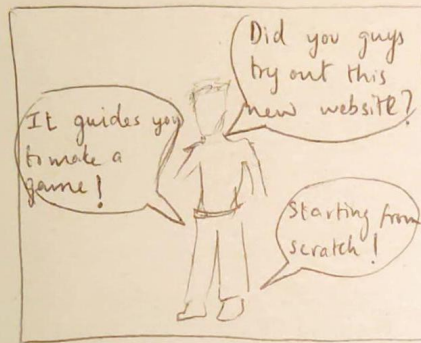 Did you guys
try out this
new website?
It guides you
to make a
game!
Starting from
scratch!